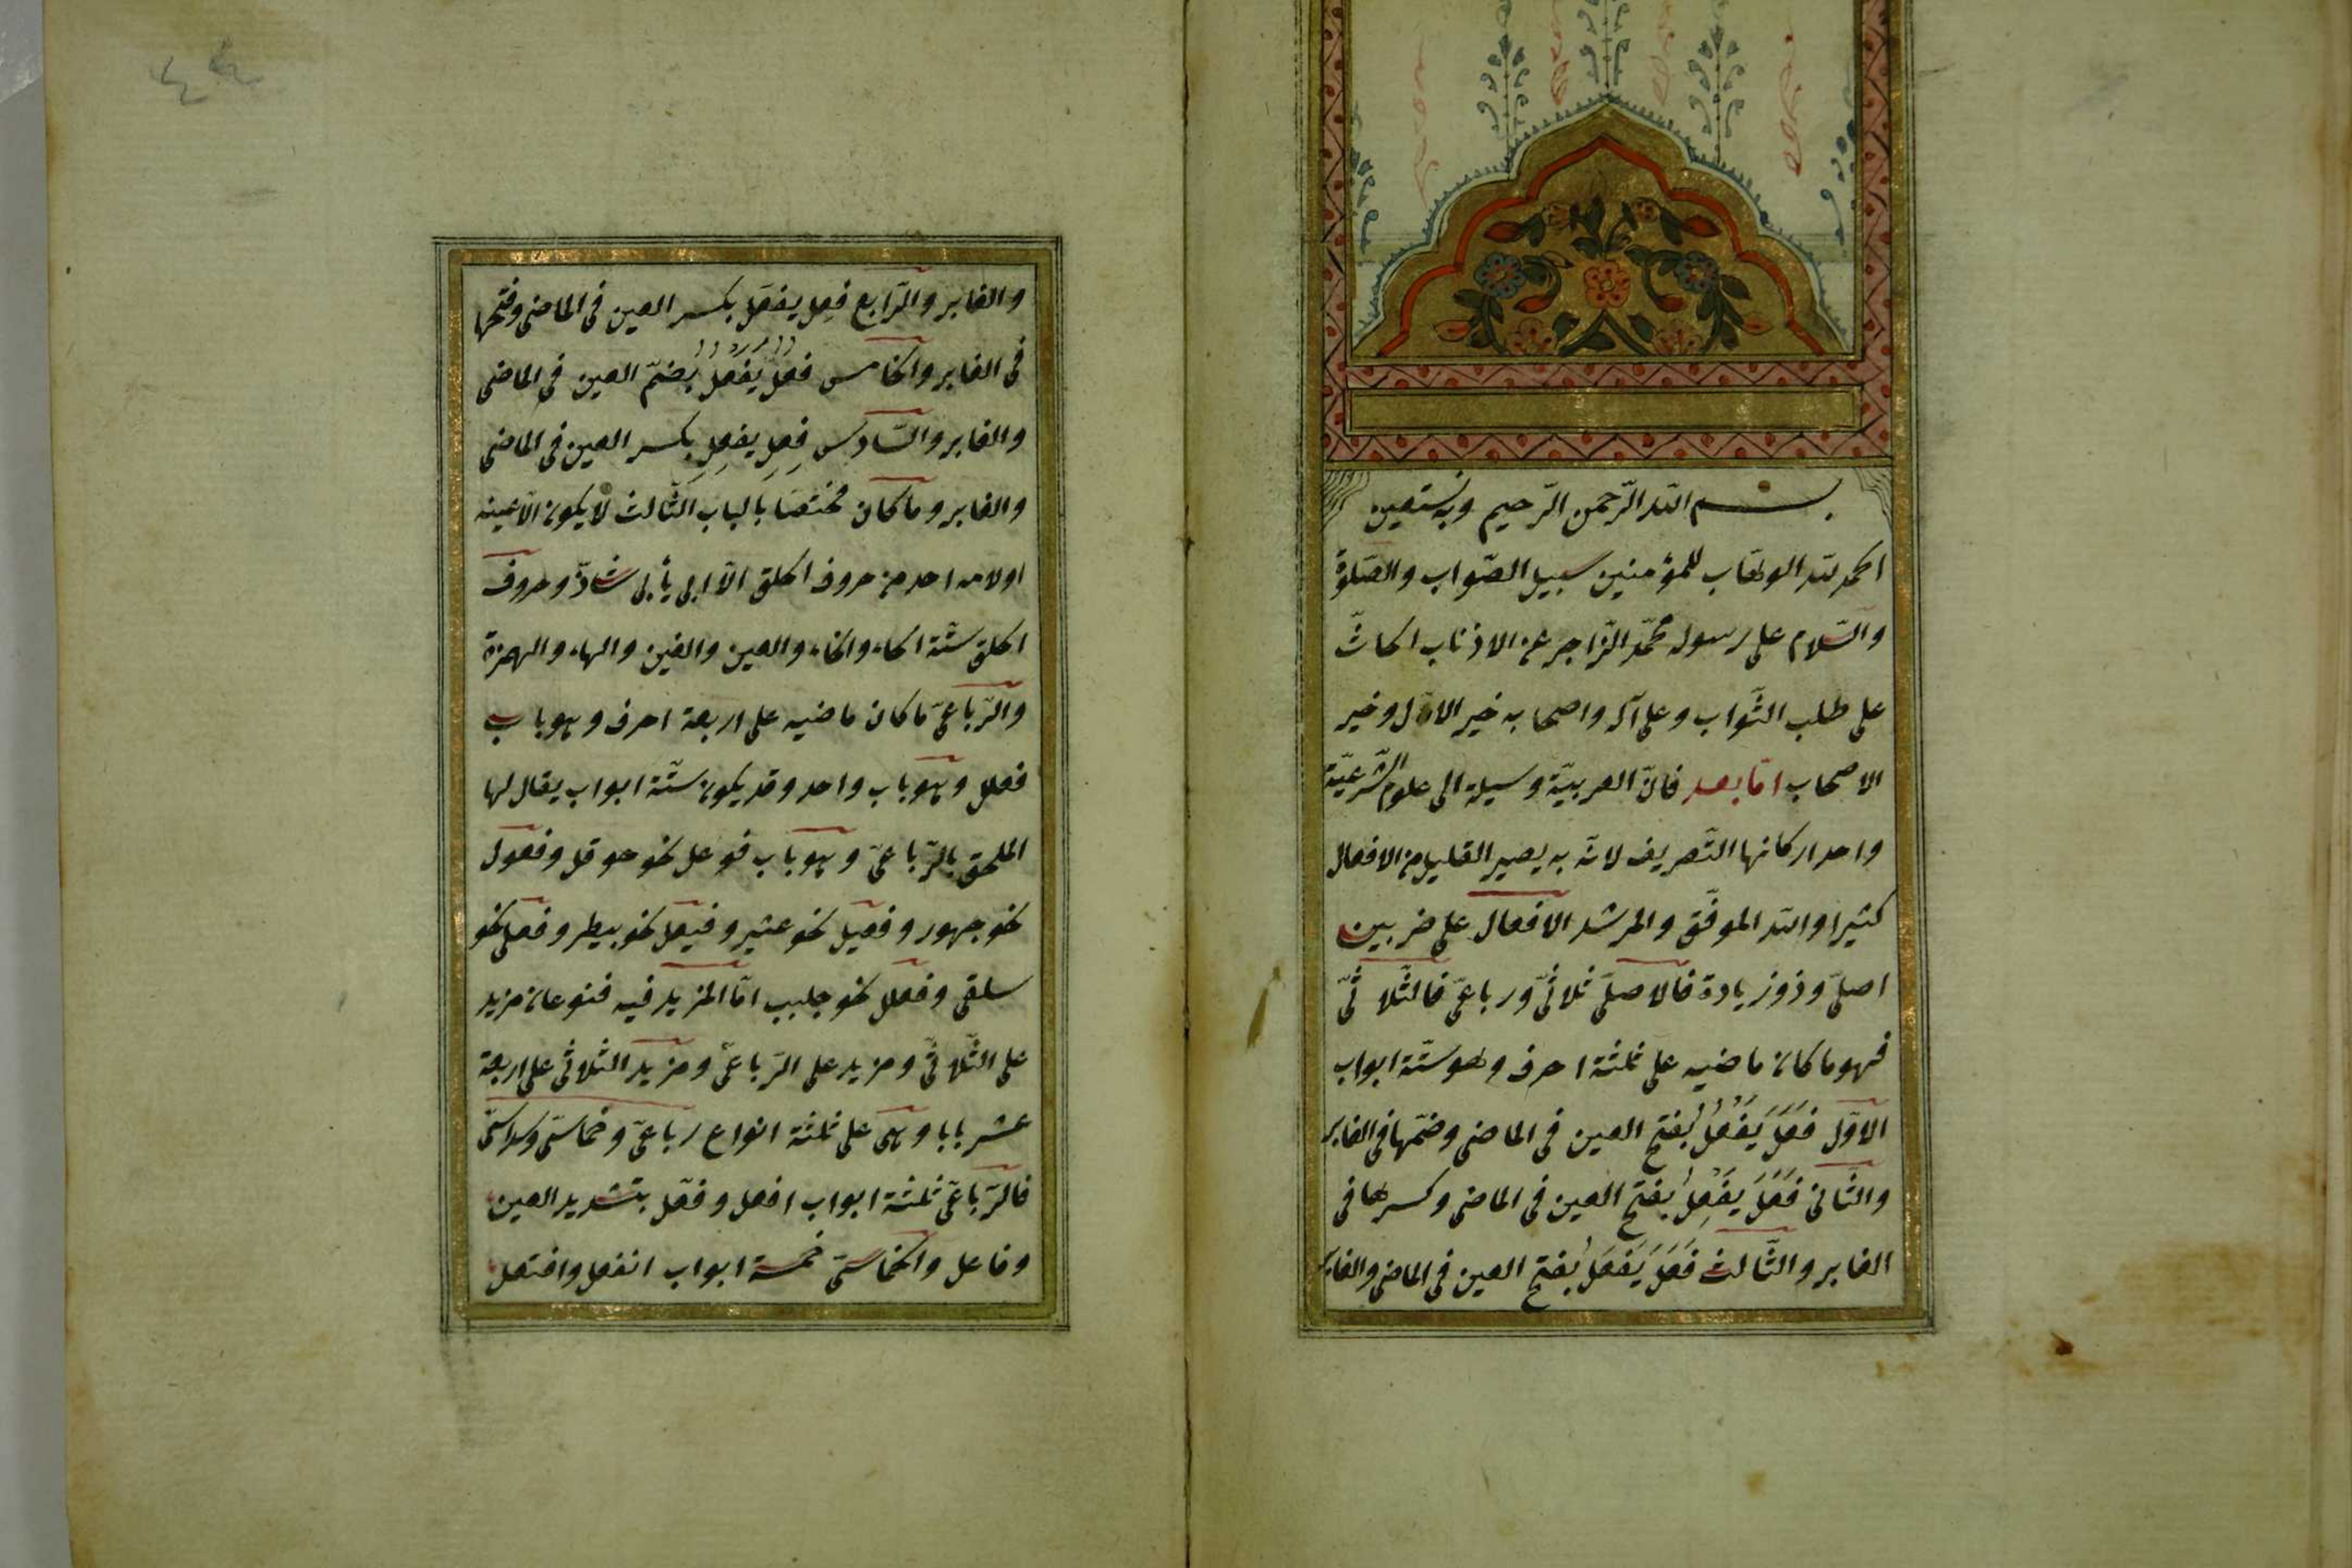 بسم الله الرّحمن الرّحيم وبه نستعين
الحمد لله الوهّاب للمؤمنين سبيل الصّواب والصّلوة
والسّلام على رسوله محمّد الزّاجر عن الاذناب الحاثّ
على طلب الثّواب وعلى آله واصحابه خير الاۤل وخير
الاصحاب امّا بعد فانّ العربيّة وسيلة الى علوم الشّرعيّة
واحد اركانها التّصريف لانّه به يصير القليل من الافعال
كثيرا والله الموفّق والمرشد الافعال على ضربين
اصلىّ وذو زيادة فالاصلىّ ثلاثىّ ورباعىّ فالثّلاثىّ
فهو ما كان ماضيه على ثلثة احرف وهو ستّة ابواب
الاوّل فَعَلَ يَفْعُلُ بفتح العين فى الماضى وضمّها فى الغابر
والثّانى فَعَلَ يَفْعِلُ بفتح العين فى الماضى وكسرها فى
الغابر والثّالث فَعَلَ يَفْعَلُ بفتح العين فى الماضى والغابر
٤٤
والغابر والرّابع فعِل يفعَل بكسر العين فى الماضى وفتحها
فى الغابر والخامس فعُلَ يَفْعُلُ بضمّ العين فى الماضى
والغابر والسّادس فعِل يفعِل بكسر العين فى الماضى
والغابر وما كان مختصّا بالباب الثّالث لا يكون الّا عينه
اولامه احد من حروف الحلق الّا ابى يأبى شاذّ وحروف
الحلق ستّة الحاء والخاء والعين والغين والهاء والهمزة
والرّباعىّ ما كان ماضيه على اربعة احرف وهو باب
فعلل وهو باب واحد وقد يكون ستّة ابواب يقال لها
الملحق بالرّباعىّ وهو باب فوعل نحو حوقل وفعول
نحو جهور وفعيل نحو عثير وفيعل نحو بيطر وفعلى نحو
سلقى وفعلل نحو جلبب امّا المزيد فيه فنوعان مزيد
على الثّلاثىّ ومزيد على الرّباعىّ ومزيد الثلاثى على اربعة
عشر بابا وهى على ثلثة انواع رباعىّ وخماسىّ وسداسىّ
فالرّباعىّ ثلثة ابواب افعل وفعّل بتشديد العين
وفاعل والخماسىّ خمسة ابواب انفعل وافتعل